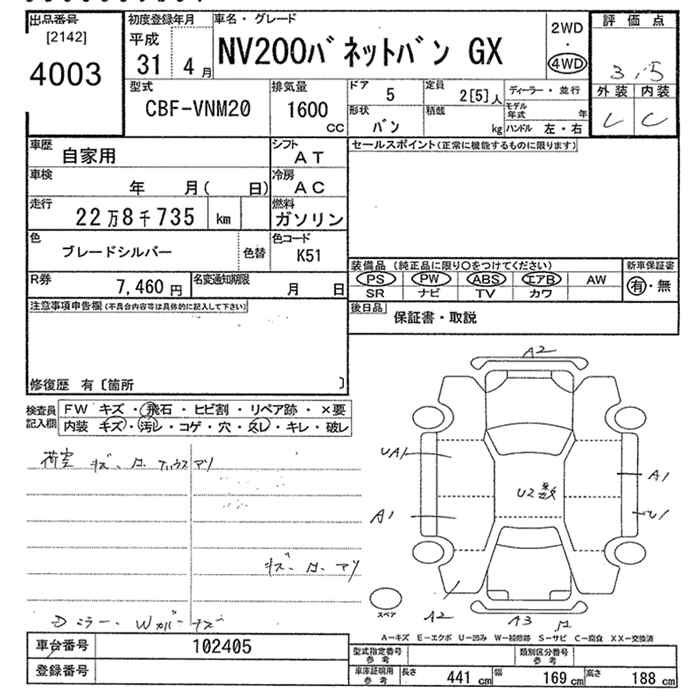 出品番号
[2142]
4003
初度登録年月
平成
31 4月
車名・グレード
NV200バネットバン GX
2WD
・
4WD
評価点
3.5
外装 内装
C
型式
CBF-VNM20
排気量
1600
CC
ドア
5
定員
2[5]人
形状
バン
積載
kg
ディーラー・並行
モデル年式 年
ハンドル 左・右
車歴
自家用
シフト
AT
車検
年 月( 日)
冷房
AC
走行
22万8千735 km
燃料
ガソリン
色
ブレードシルバー
色替
色コード
K51
R券
7,460円
名変通知期限
月 日
セールスポイント(正常に機能するものに限ります)
装備品 (純正品に限り〇をつけてください)
新車保証書
PS PW ABS エアB AW
有・無
SR ナビ TV カワ
後日品
保証書・取説
注意事項申告欄(不具合内容等は具体的に記入して下さい)
修復歴 有〔箇所 〕
検査員
記入欄
FW キズ・飛石・ヒビ割・リペア跡・×要
内装 キズ・汚レ・コゲ・穴・スレ・キレ・破レ
荷室 キズ
キズ
Dミラー Wカバー キズ
A2
UA1
A1
U2
A1
U1
A2
A3
スペア
A-キズ E-エクボ U-凹み W-補修跡 S-サビ C-腐食 XX-交換済
車台番号
102405
登録番号
型式指定番号
参考
類別区分番号
参考
車庫証明用
参考
長さ 441 cm
幅 169 cm
高さ 188 cm